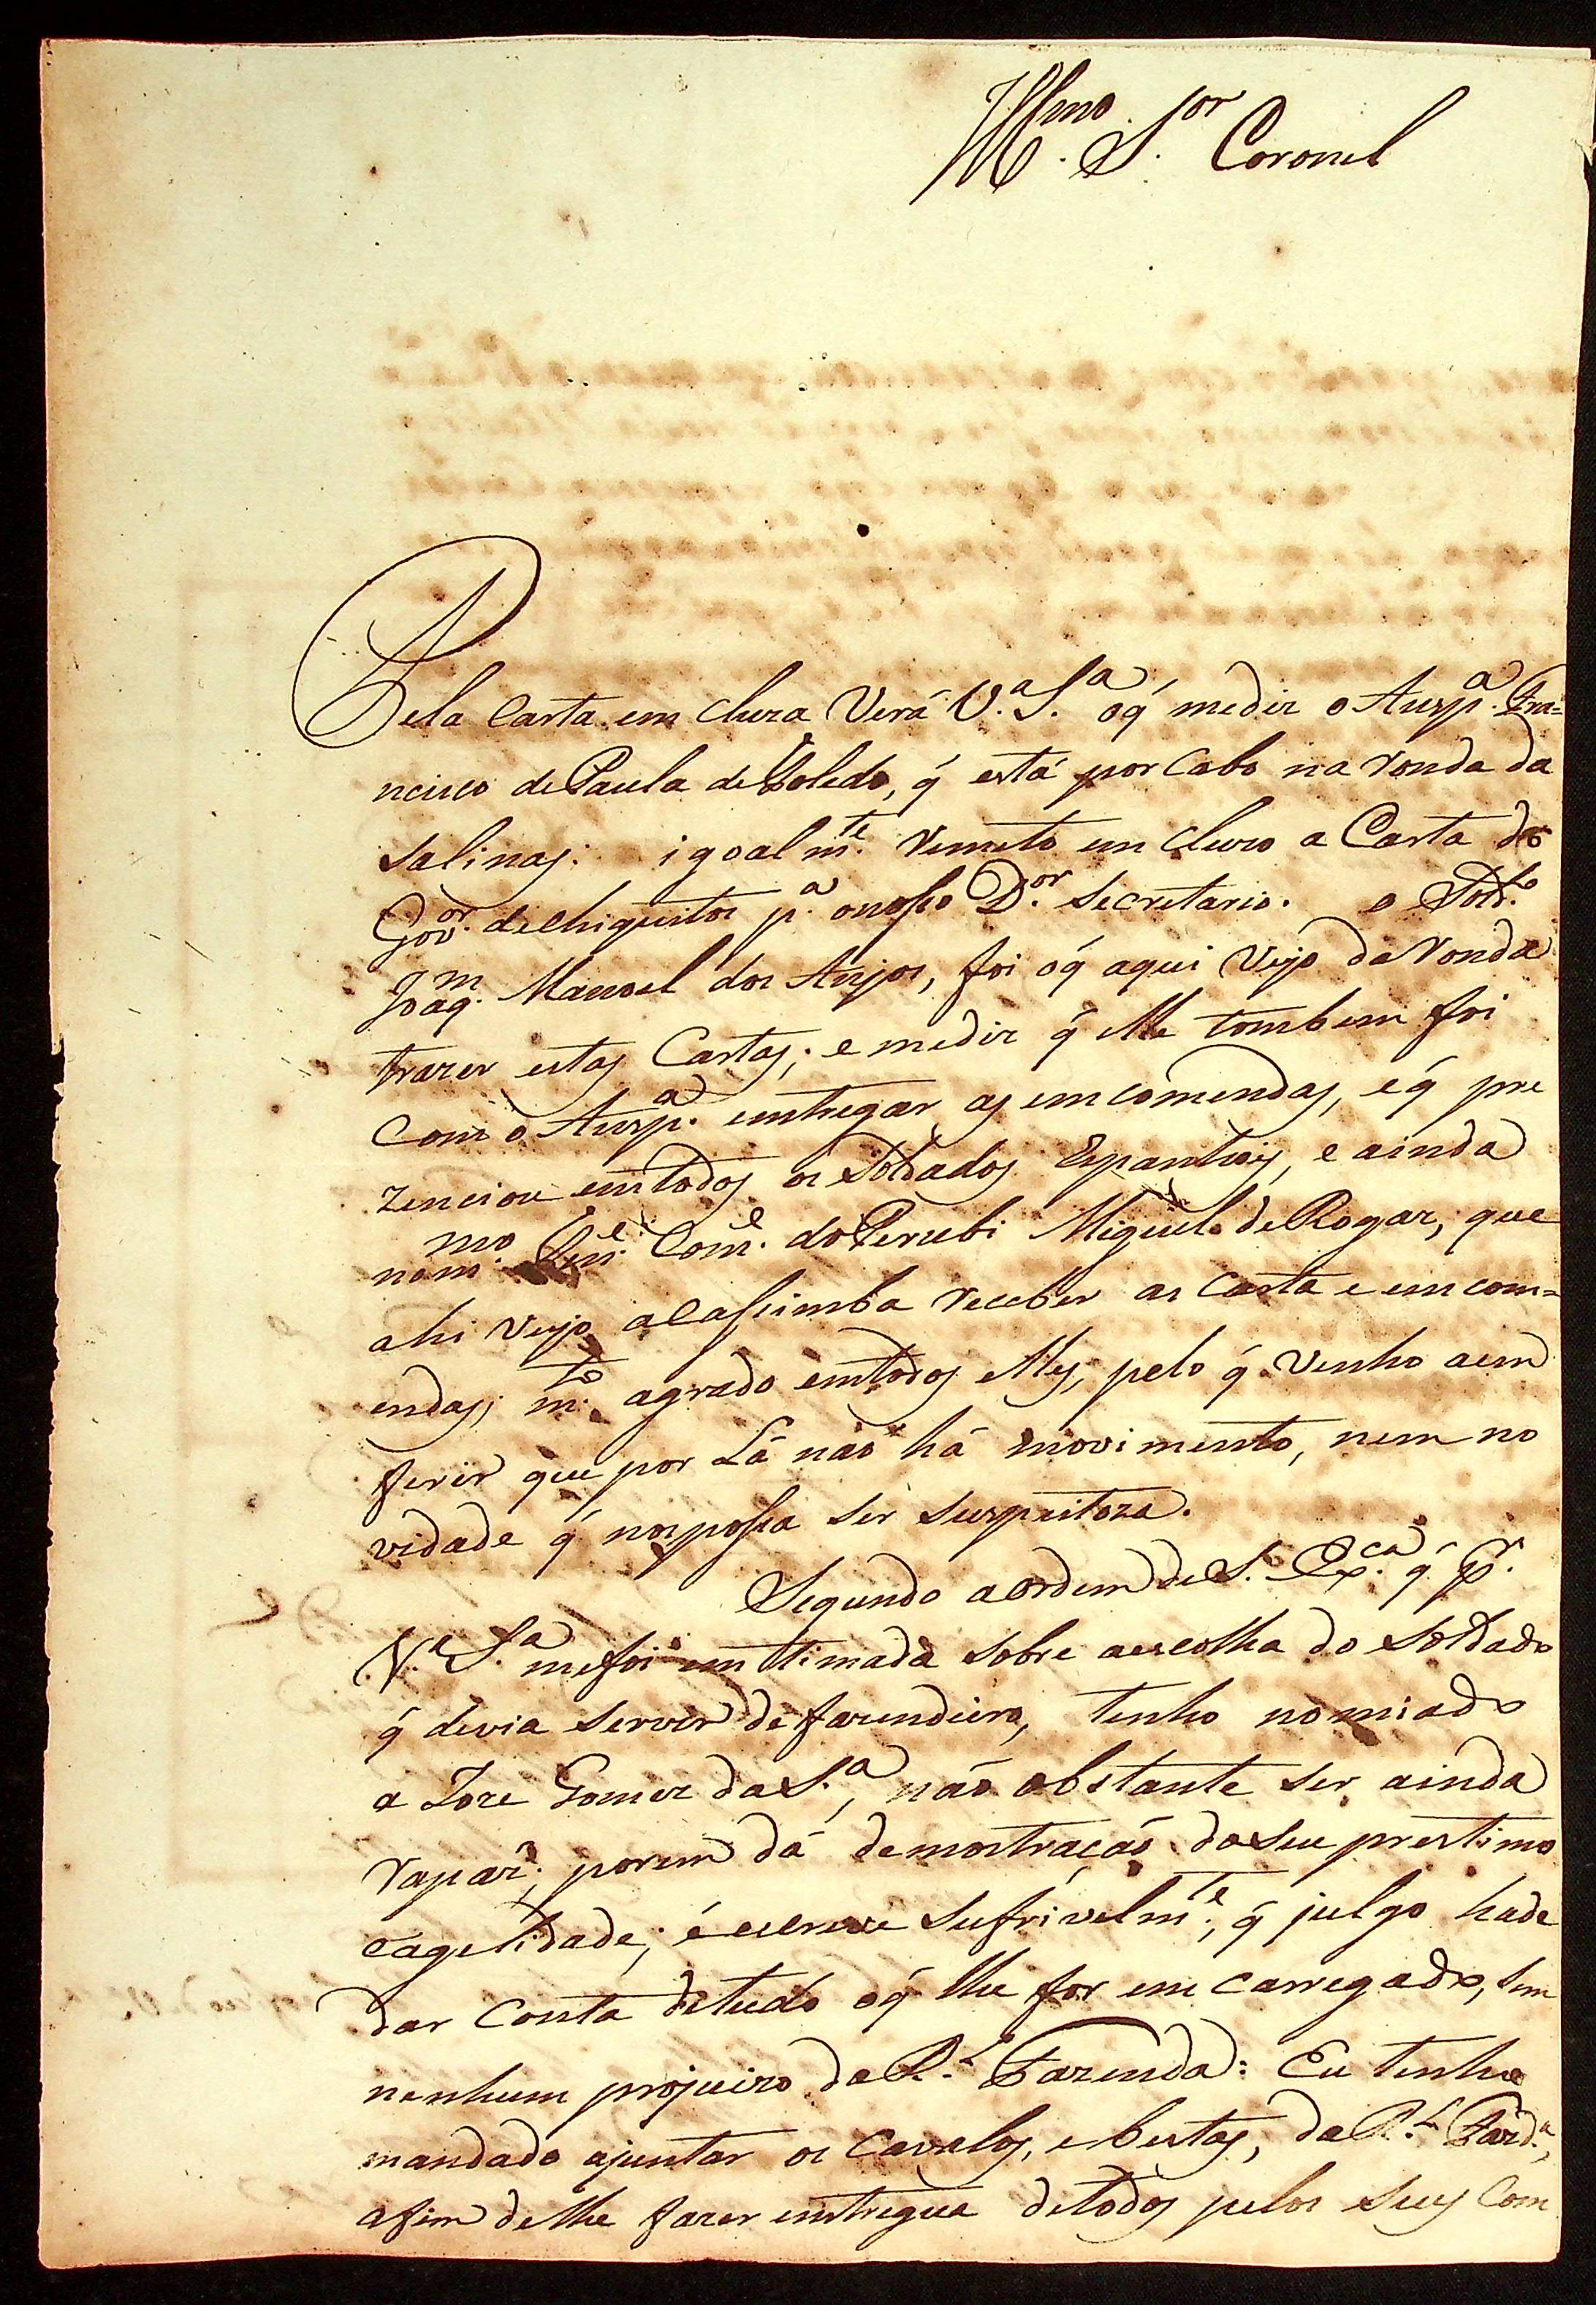 Illmo. Sor. Coronel
Pela Carta em cluza Verá V.a S.a oq́ médiz o Ansp.a Fra=
ncisco de Paula de Toledo, q́ está por Cabo na ronda da
Salinas: igoalmte. Remeto em cluzo a Carta do
Gov.or de Chiquitos p.a onosso D.or Secretario. o Sold.o
Joaq.m Manoel dos Anjos, foi oq́ aqui Veyo da Ronda
trazer estas Cartas; e mediz q́ elle tombem foi
com o Ansp.a emtregar as emcomendas, eq́ pre
zenciou emtodos os Soldados Espanhois, e ainda
nommo. Ten.e Com.e do Perubi Miguel de Rogar, que
ahi Veyo a Cassimba receber as Carta e emcom=
endas; m.to agrado emtodos elles, pelo q́ Venho aem
ferir que por Lá não há movimento, nem no
vidade q́ nos possa ser suspeitoza.
Segundo aordem de S. Ex.ca q́ pr.
V.a S.a mefoi emtimada sobre aescolha do Soldado
q́ devia servir de fazendeiro, tenho nomiado
a Joze Gomez da S.a, não obstante ser ainda
rapaz; porem dá demostração do seu prestimo
eagelidade; é escreve sufrivelmte., q́ julgo hade
dar Conta detudo oq́ lhe for em carregado, sem
nenhum projuizo da R.l Fazenda: Eu tenho
mandado ajuntar os Cavalos, e bestas, da R.l Fazd.a,
afim delhe fazer emtregua detodos pelos seus Com